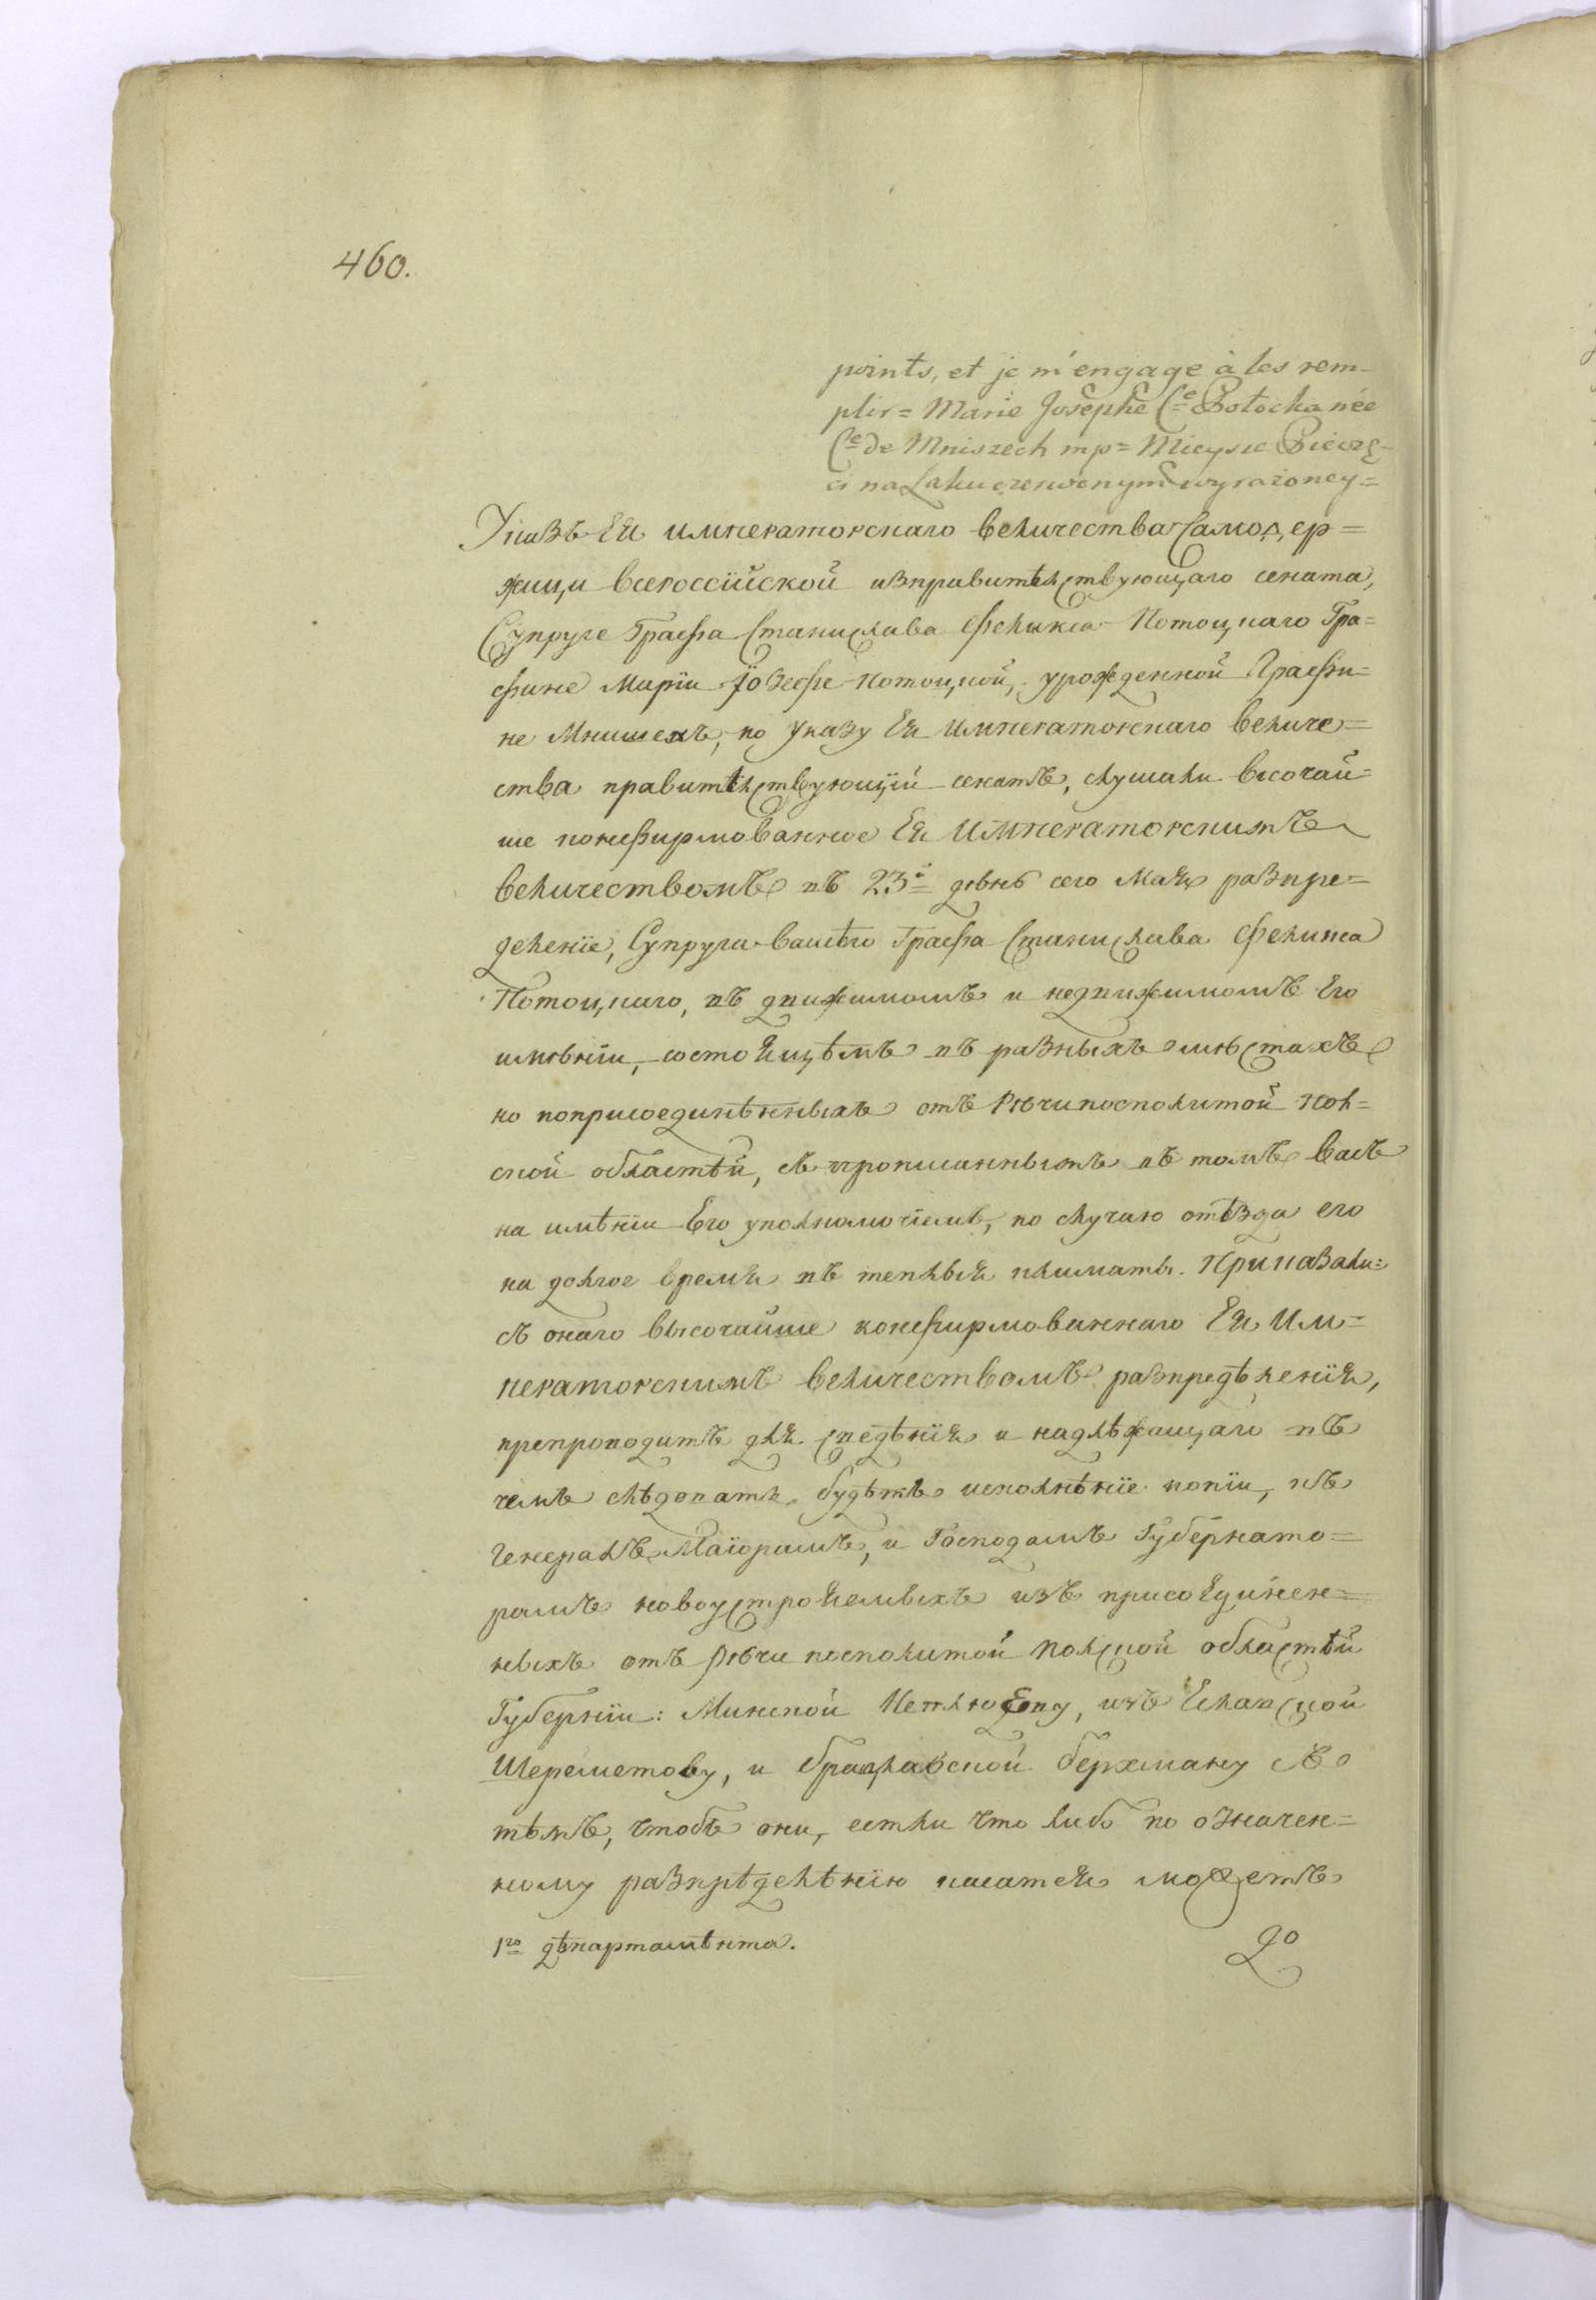 460.
points, et je m'engage à les rem-
plir = Marie Josephe Cᵉ Potocka née
Cᵉ de Mniszech mp = Mieysce Pieczę-
ci na Laku czerwonym wyrażoney =
Указъ Ея императорскаго величества самодер=
жицы всероссійской изправителствующаго сената,
Супруге Графа Станислава Феликса Потоцкаго Гра=
фине Маріи Іозефе потоцкой, урожденной Графи=
не Мнишехъ, по указу Ея императорскаго величе=
ства правителствующій сенатъ, слушали высочай=
ше конфирмованное Ея Императорскимъ
величествомъ въ 23ͥ день сего Мая разпре=
деленіе, Супруга вашего Графа Станислава Феликса
Потоцкаго, въ движимомъ и недвижимомъ Его
имѣніи, состоящемъ въ разныхъ мѣстахъ
но поприсоединенныхъ отъ Рѣчипосполитой пол=
ской областей, съ прописаннымъ въ томъ васъ
на имѣніи Его уполномочіемъ, по случаю отѣзда его
на долгое время въ теплыя климаты. Приказали:
съ онаго высочайше конфирмованнаго Ея Им=
ператорскимъ величествомъ разпредѣленія,
препроводить для сведѣнія и надлежащаго въ
чемъ слѣдовать будетъ исполненіе копіи, къ
Генералъ Маіорамъ, и Господамъ Губернато=
рамъ новоустрояемыхъ изъ присоядинен=
ныхъ отъ рѣчи посполитой полской областей
Губерніи: Минской Неплюеву, изъ Еславской
Шереметову, и брацлавской берхману съ
темъ, чтобъ они, естли что либо по означен=
ному разпределенію касатся можетъ
1ᵍᵒ департамента.
до